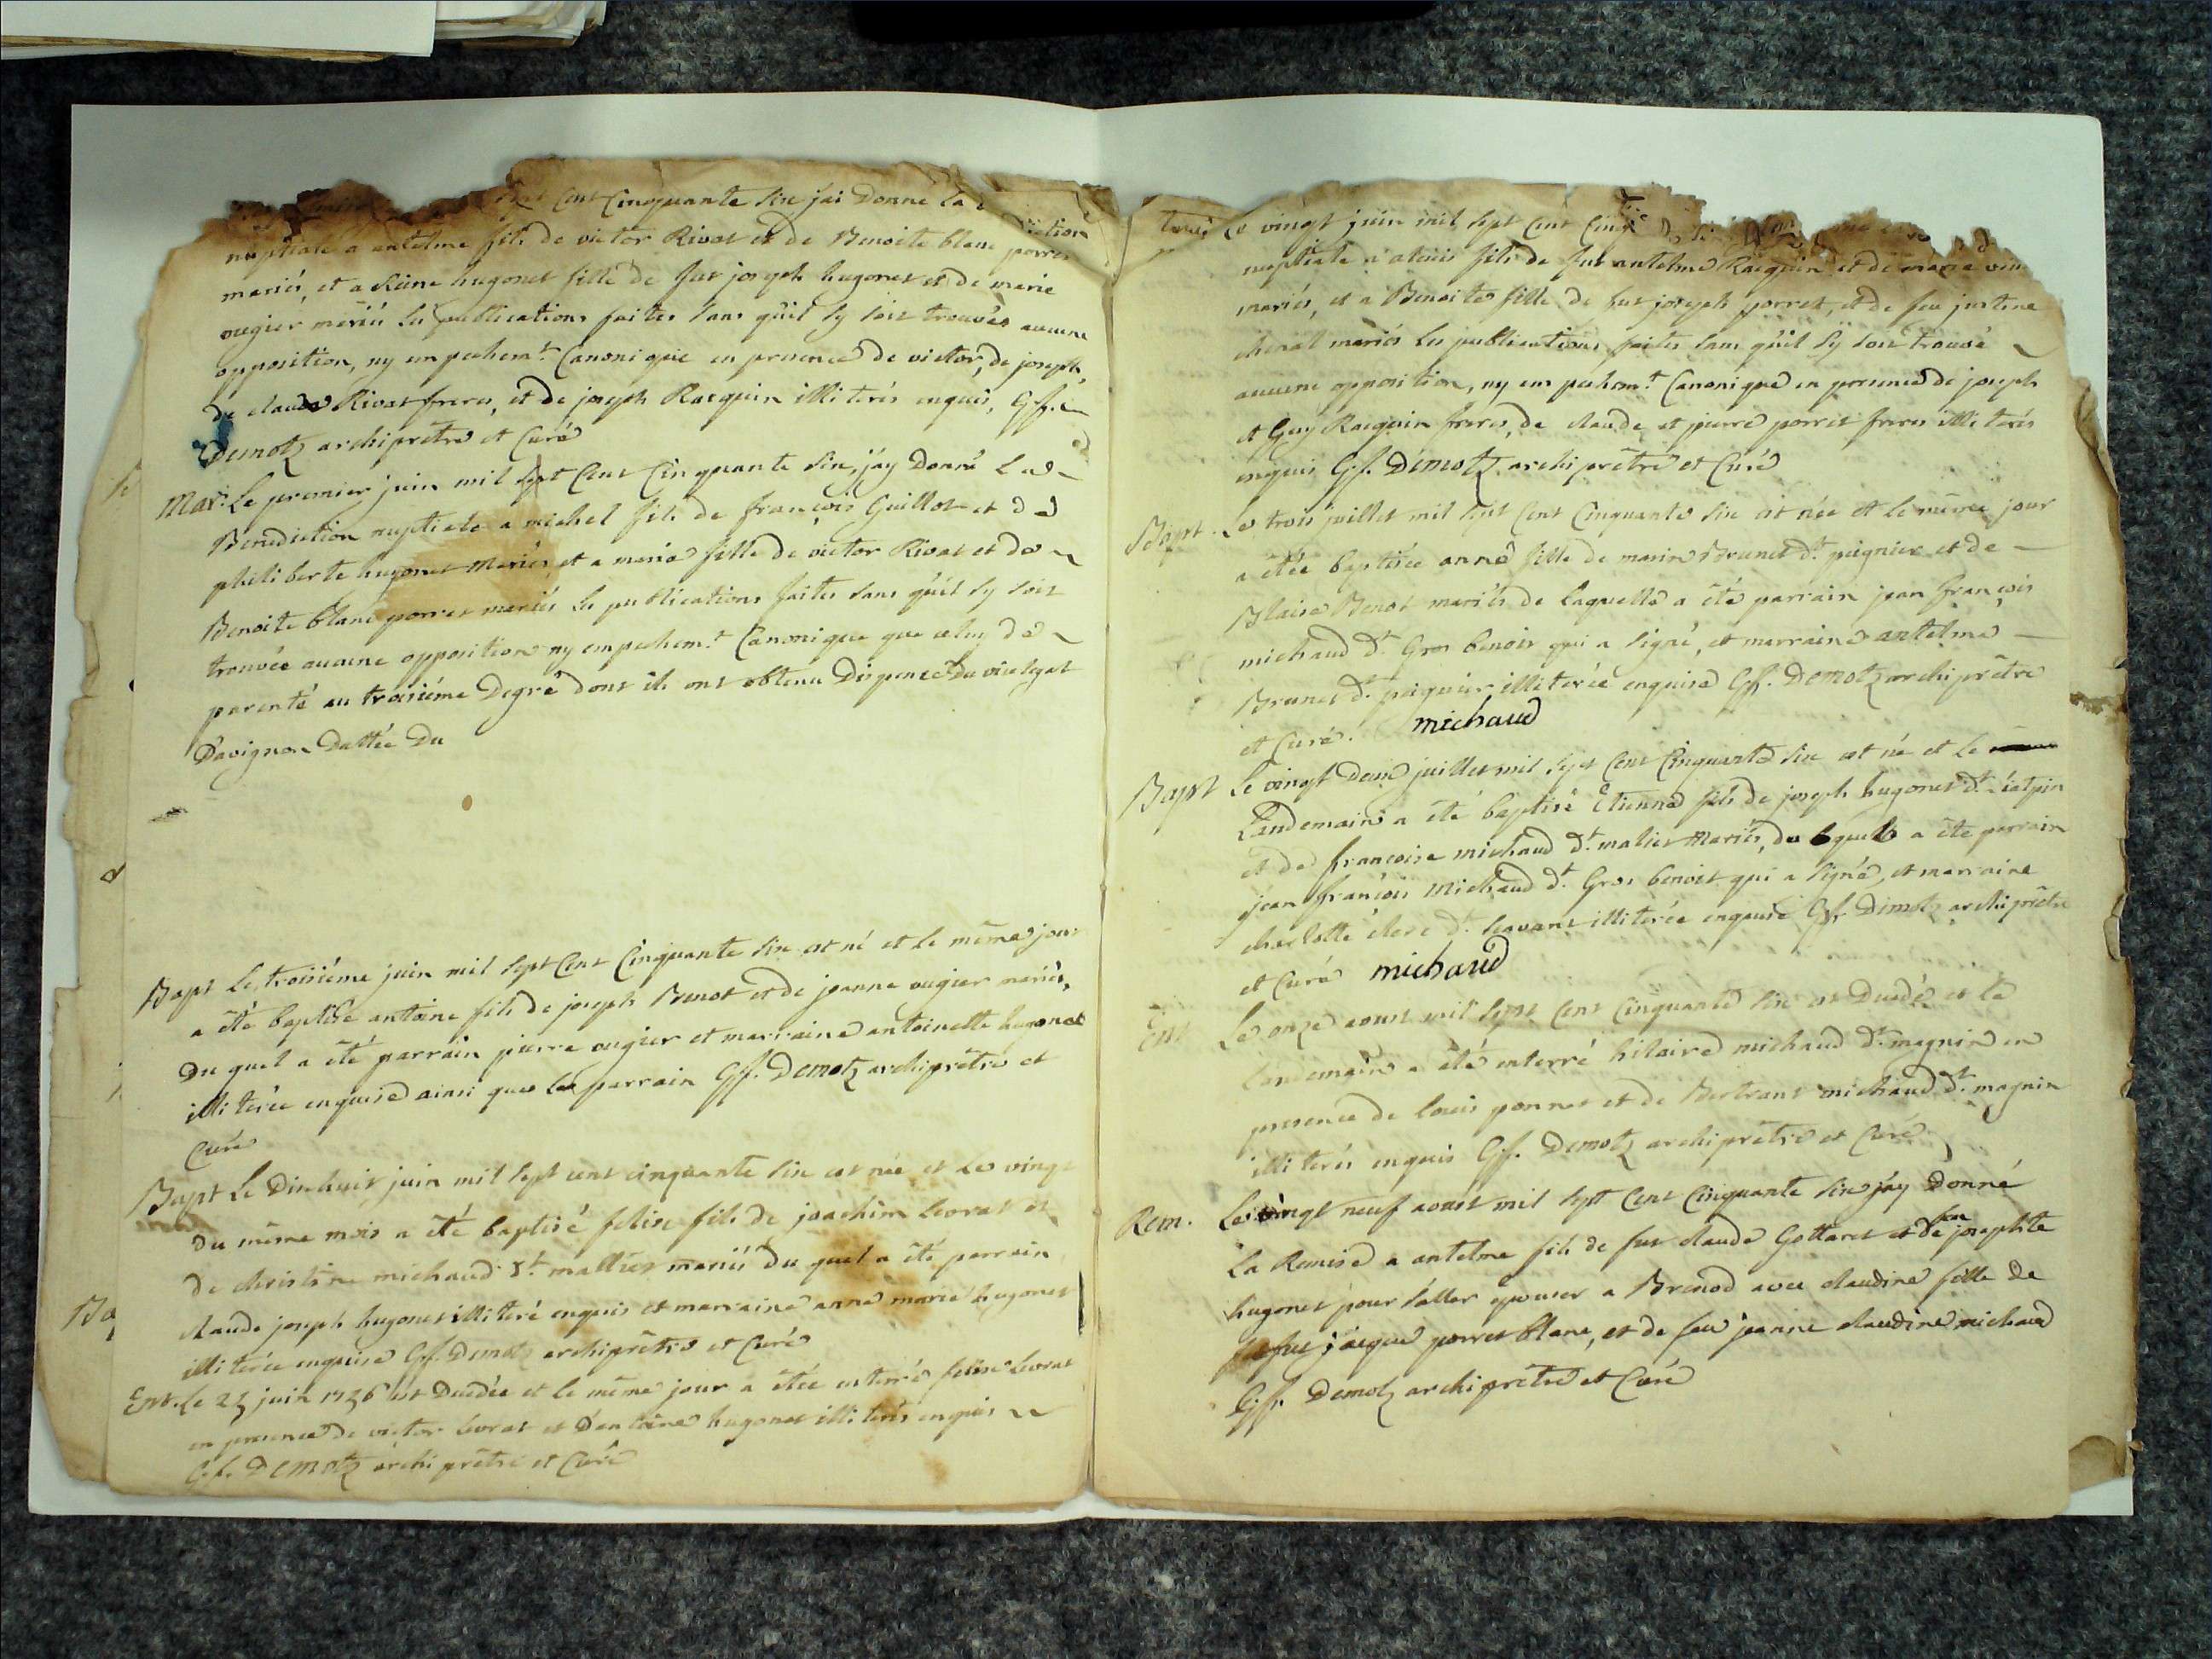 sept Cent Cinquante six jai Donné la
nuptiale a antelme fils de victor Rivat et de Benoite blanc porret
mariés, et a hugonet fille de fut joseph hugonet et de marie
ougier mariés les publications faites sans qu'il sy soit trouvés aucune
opposition, ny empechem.t Canonique en presence de victor, de joseph,
de claude Rivat freres, et de joseph Racquin illiterés enquis, G.f.
Demotz archiprêtre et Curé
Mar. Le premier juin mil sept Cent Cinquante six, j'ay Donné La
Benediction nuptiale a michel fils de françois Guillot et de
philiberte hugonet Mariés, et a marie fille de victor Rivat et de
Benoite blanc porret mariés les publications faites sans qu'il sy soit
trouvée aucune opposition ny empechem.t Canonique que celuy de
parenté au troisiéme Degré dont ils ont obtenu Dispence du vicelegat
D'avignon Dattée Du
Bapt Le troisiéme juin mil sept Cent Cinquante six est né et le même jour
a été baptisé antoine fils de joseph Benot et de jeanne ougier mariés,
Du quel a été parrain pierre ougier et marraine antoinette hugonet
illiterée enquise ainsi que le parrain G.f. Demotz archiprêtre et
Curé
Bapt Le Dixhuit juin mil sept cent cinquante six est née et Le vingt
Du même mois a été baptisé felix fils de joachim Levrat et
de christine michaud d.t mallier mariés du quel a été parrain
claude joseph hugonet illiteré enquis et marraine anne marie hugonet
illiterée enquise G.f. Demotz archiprêtre et Curé
Ent. Le 25 juin 1756 est Decedée et le même jour a étée enterré felix Levrat
en presence de victor Levrat et D'antoine hugonet illiterés enquis
G.f. Demotz archiprêtre et Curé
Ba
Le vingt juin mil sept Cent Cinq
nuptiale a fils de fut antelme Racquin et de marie
mariés, et a Benoite fille de fut joseph porret, et de feu justine
mariés les publications faites sans qu'il sy soit trouvé
aucune opposition, ny empechem.t Canonique en presence de joseph
et Guy Racquin freres, de claude et pierre porret freres illiterés
enquis G.f. Demotz archiprêtre et Curé
Bapt. Le trois juillet mil sept Cent Cinquante six est née et le même jour
a étée baptisée anne fille de marin Brunet d.t peignier et de
Blaise Benot mariés de laquelle a été parrain jean françois
michaud d.t Gros benoit qui a signé, et marraine antelme
Brunet d.t peignier illiterée enquise G.f. Demotz archiprêtre
et Curé. michaud
Bapt Le vingt Deux juillet mil sept Cent Cinquante six est né et le
Landemain a été baptisé Etienne fils de joseph hugonet d.t
et de françoise michaud d.t malier Mariés, du quel a été parrain
jean françois Michaud d.t Gros benoit qui a signé, et marraine
charlotte clerc d.t Savant illiterée enquise G.f. Demotz archiprêtre
et Curé michaud
Ent Le onze aoust mil sept Cent Cinquante six est Decedé et le
Landemain a été enterré hilaire michaud d.t magnin en
presence de Louis ponnet et de Bertrant michaud d.t magnin
illiterés enquis G.f. Demotz archiprêtre et Curé
Rem. Le vingt neuf aoust mil sept Cent Cinquante six j'ay Donné
La Remise a antelme fils de fut claude Gottaret et de feu josephte
hugonet pour s'aller epouser a Brenod avec claudine fille de
fut jacque porret blanc, et de feu jeanne claudine michaud
G.f. Demotz archiprêtre et Curé